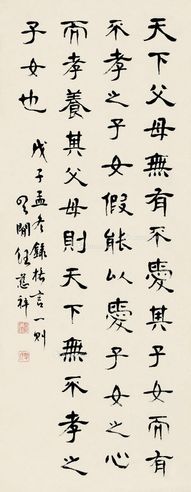 天下父母無有不愛其子女而有
不孝之子女假能以愛子女之心
而孝養其父母則天下無不孝之
子女也
戊子孟冬錄格言一則